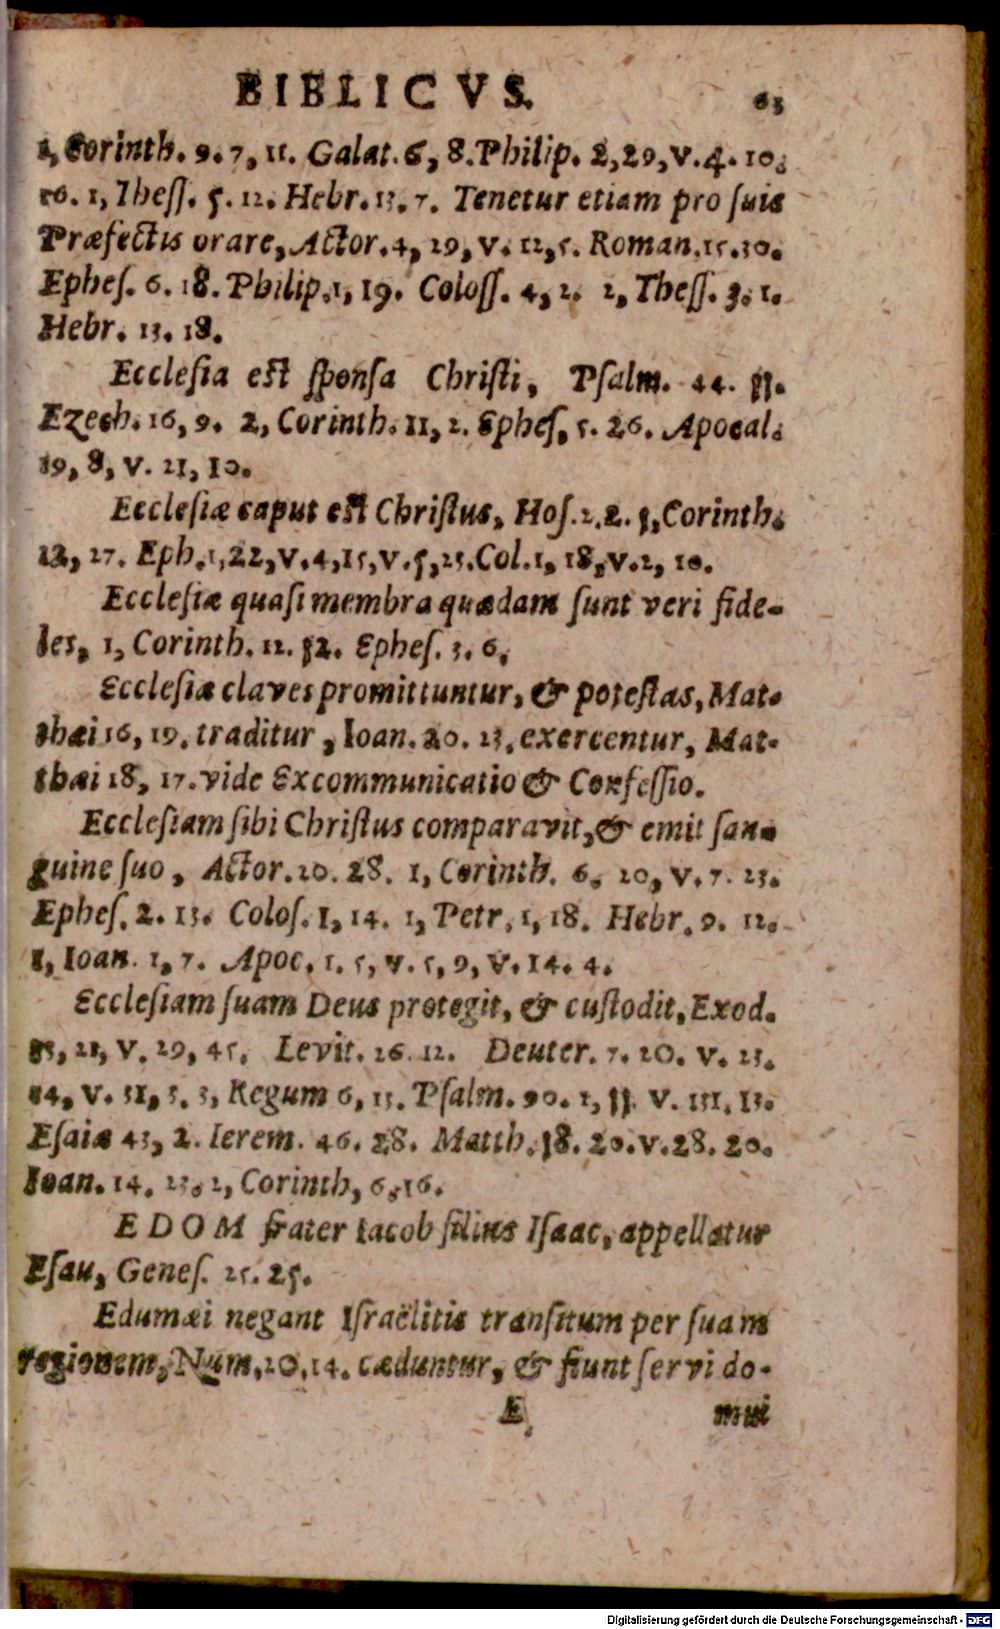 BIBLICVS. 63
1, Corinth. 9. 7, 11. Galat. 6, 8. Philip. 2, 29, v. 4. 10.
16. 1, Theſſ. 5. 12. Hebr. 13. 7. Tenetur etiam pro ſuis
Præfectis orare, Actor. 4, 29, v. 12, 5. Roman. 15. 30.
Epheſ. 6. 18. Philip. 1, 19. Coloſſ. 4, 2. 2, Theſſ. 3. 1.
Hebr. 13. 18.
Eccleſia eſt ſponſa Chriſti, Pſalm. 44. 11.
Ezech. 16, 9. 2, Corinth. 11, 2. Epheſ. 5. 26. Apocal.
19, 8, v. 21, 10.
Eccleſiæ caput eſt Chriſtus, Hoſ. 2. 2. 1, Corinth.
12, 27. Eph. 1, 22, v. 4, 15, v. 5, 23. Col. 1, 18, v. 2, 10.
Eccleſiæ quaſi membra quædam ſunt veri fide-
les, 1, Corinth. 12. 12. Epheſ. 3. 6.
Eccleſiæ claves promittuntur, & poteſtas, Mat-
thæi 16, 19. traditur, Ioan. 20. 23. exercentur, Mat-
thæi 18, 17. vide Excommunicatio & Confeſſio.
Eccleſiam ſibi Chriſtus comparavit, & emit ſan-
guine ſuo, Actor. 20. 28. 1, Corinth. 6. 20, v. 7. 23.
Epheſ. 2. 13. Coloſ. 1, 14. 1, Petr. 1, 18. Hebr. 9. 12.
1, Ioan. 1, 7. Apoc. 1. 5, v. 5, 9, v. 14. 4.
Eccleſiam ſuam Deus protegit, & cuſtodit, Exod.
21, v. 29, 45. Levit. 26. 12. Deuter. 7. 20. v. 23.
14, v. 31, 3. 3, Regum 6, 13. Pſalm. 90. 1, 11. v. 131, 13.
Eſaiæ 43, 2. Ierem. 46. 28. Matth. 18. 20. v. 28. 20.
Ioan. 14. 23. 2, Corinth, 6, 16.
EDOM frater Iacob filius Iſaac, appellatur
Eſau, Geneſ. 25. 25.
Edumæi negant Iſraëlitis tranſitum per ſuam
regionem, Num. 20. 14. cæduntur, & fiunt ſervi do-
E mui
Digitalisierung gefördert durch die Deutsche Forschungsgemeinschaft - DFG